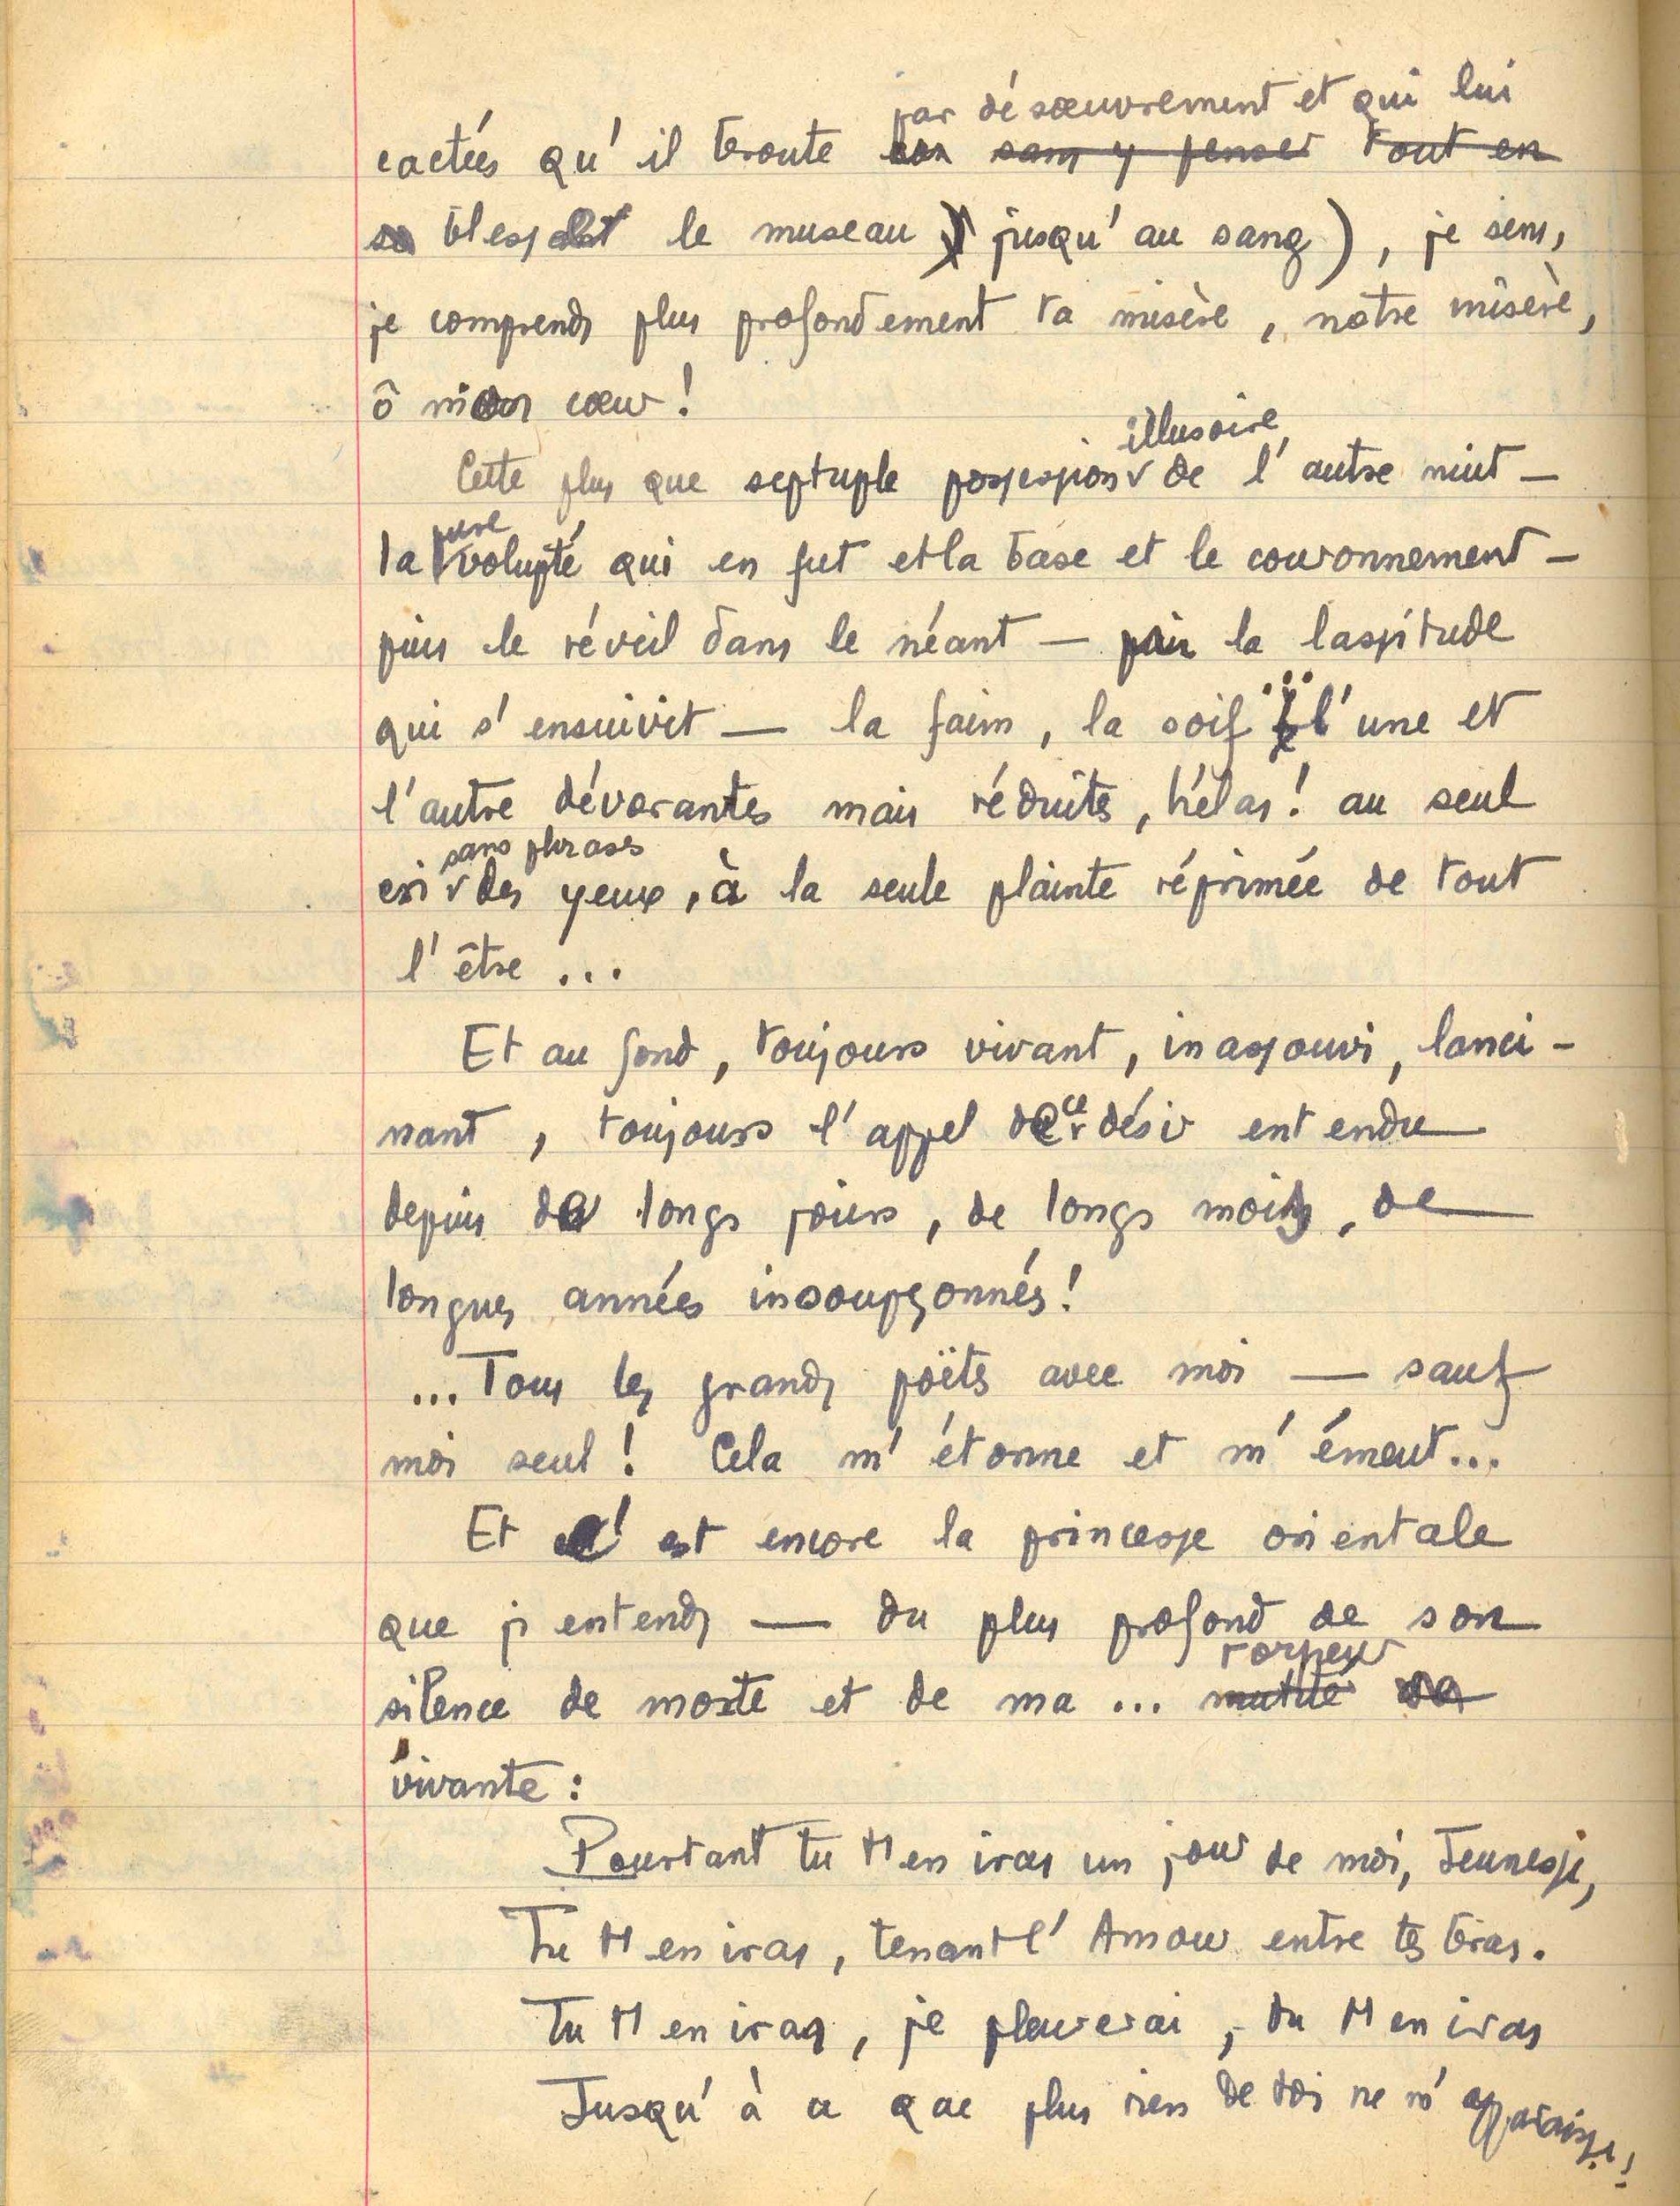 par désœuvrement et qui lui
cactées qu'il broute sans y penser tout en
blessent le museau jusqu'au sang), je sens,
je comprends plus profondément ta misère, notre misère,
ô mon cœur !
illusoire
Cette plus que septuple possession de l'autre nuit —
pure
la volupté qui en fut et la base et le couronnement —
puis le réveil dans le néant — puis la lassitude
qui s'ensuivit — la faim, la soif ... l'une et
l'autre dévorantes mais réduites, hélas ! au seul
sans phrases
cri des yeux, à la seule plainte réprimée de tout
l'être ...
Et au fond, toujours vivant, inassouvi, lanci-
nant, toujours l'appel de ce désir entendu
depuis de longs jours, de longs mois, de
longues années insoupçonnés !
... Tous les grands poëtes avec moi — sauf
moi seul ! Cela m'étonne et m'émeut ...
Et c'est encore la princesse orientale
que j'entends — du plus profond de son
torpeur
silence de morte et de ma ... mutité de
vivante :
Pourtant tu t'en iras un jour de moi, Jeunesse,
Tu t'en iras, tenant l'Amour entre tes bras.
Tu t'en iras, je pleurerai, tu t'en iras
Jusqu'à ce que plus rien de toi ne m'apparaisse !